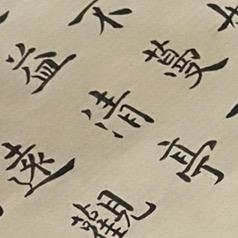 不蔓
益清亭
遠觀